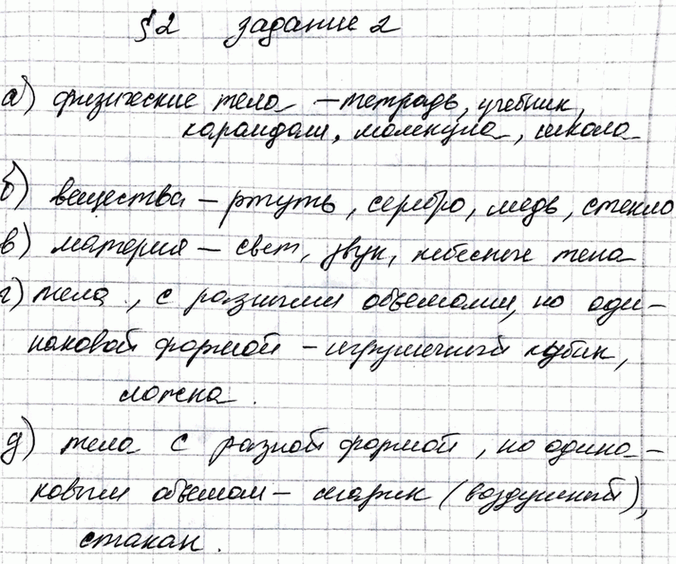 §2 задание 2
а) физические тела – тетрадь, учебник,
карандаш, молекула, школа
б) вещества – ртуть, серебро, медь, стекло
в) материя – свет, звук, небесные тела
г) тела, с разными объемами, но оди-
наковой формой – игрушечный кубик,
ложка.
д) тела с разной формой, но одина-
ковым объемом – шарик (воздушный),
стакан.